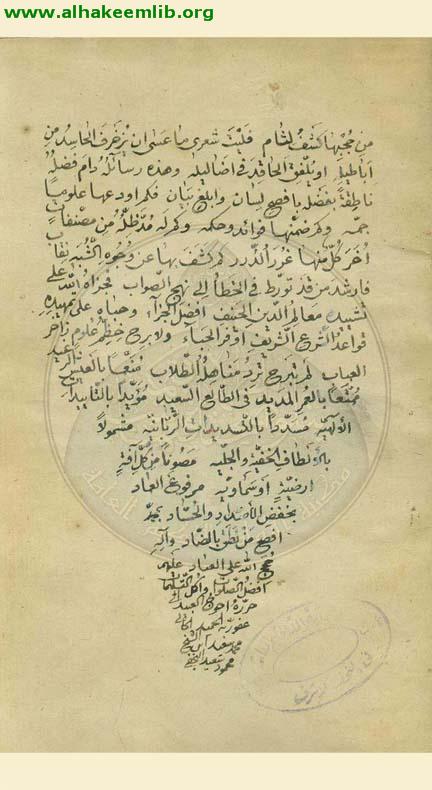 www.alhakeemlib.org
من حجبها كشف لثام فليت شعرى ما عسى ان يزخرف الحاسد من
اباطيله او يلفق الحاقد فى اضاليله وهذه رسائله دام فضله
ناطقة بفضله بافصح لسان وابلغ بيان فكم اودعها علوما
جمه وكم ضمنها فوائد وحكمه وكم له مد ظله من مصنفات
أخر كل منها غرر الدرر كم كشف بها عن وجوه الشبه نقاب
فارشد من قد تورط فى الخطأ الى نهج الصواب فجزاه الله على
تشييده معالم الدين الحنيف افضل الجزآء وحباه على تمهيده
قواعد الشرع الشريف اوفر الحبآء ولا برح خضم علومه زاخر
العباب لم تبرح ترد مناهله الطلاب منعما بالعيش الرغيد
ممتعا بالعمر المديد فى الطالع السعيد مؤيدا بالتأييدات
الألهية مسددا بالتسديدات الربانية مشمولا
بالالطاف الخفية والجلية مصونا من كل آفة
ارضية او سماوية مرفوع العماد
بخفض الأضداد والحساد بجد
افصح من نطق بالضاد وآله
الله على العباد عليهم
افضل الصلوات واكمل التحيات
حرره احوج العبيد الى
عفو ربه الحميد
محمد سعيد ابن الشيخ
محمود سعيد النجفى